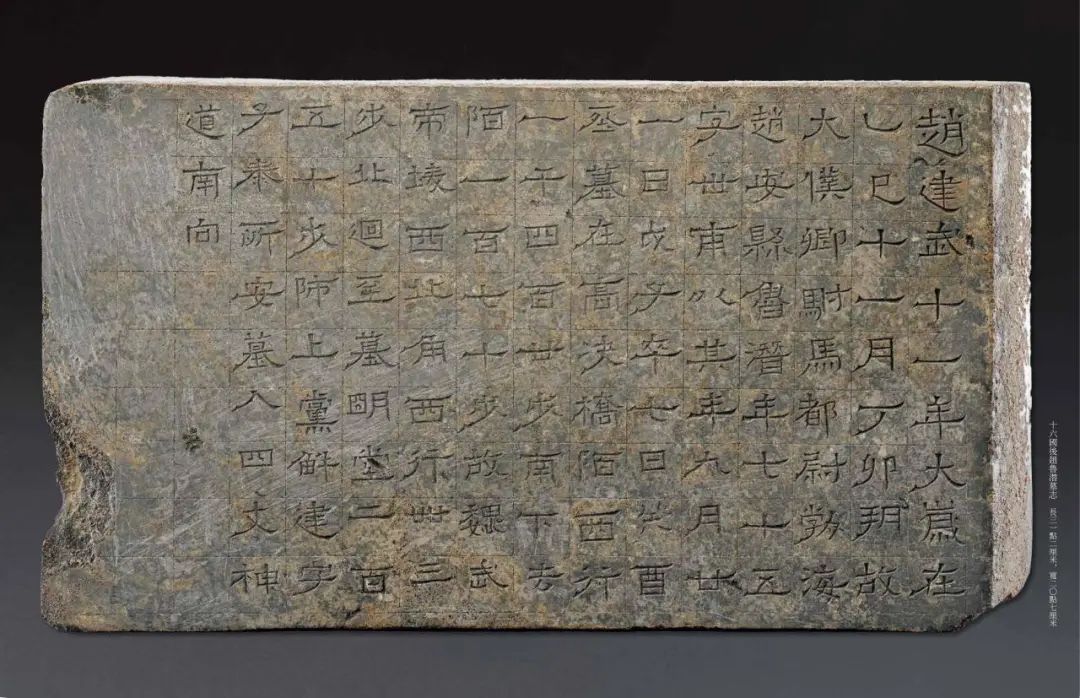 趙建武十一年大歲在
乙巳十一月丁卯朔故
大僕卿駙馬都尉勃海
趙安縣魯潛年七十五
字世甫以其年九月廿
一日戊子卒七日癸酉
葬墓在高決橋陌西行
一千四百廿步南下去
陌一百七十步故魏武
帝陵西北角西行卌三
步北迴至墓明堂二百
五十步師上黨解建字
子奉所安墓入四丈神
道南向
十六國後趙魯潛墓志 長三一點二厘米，寬二〇點七厘米